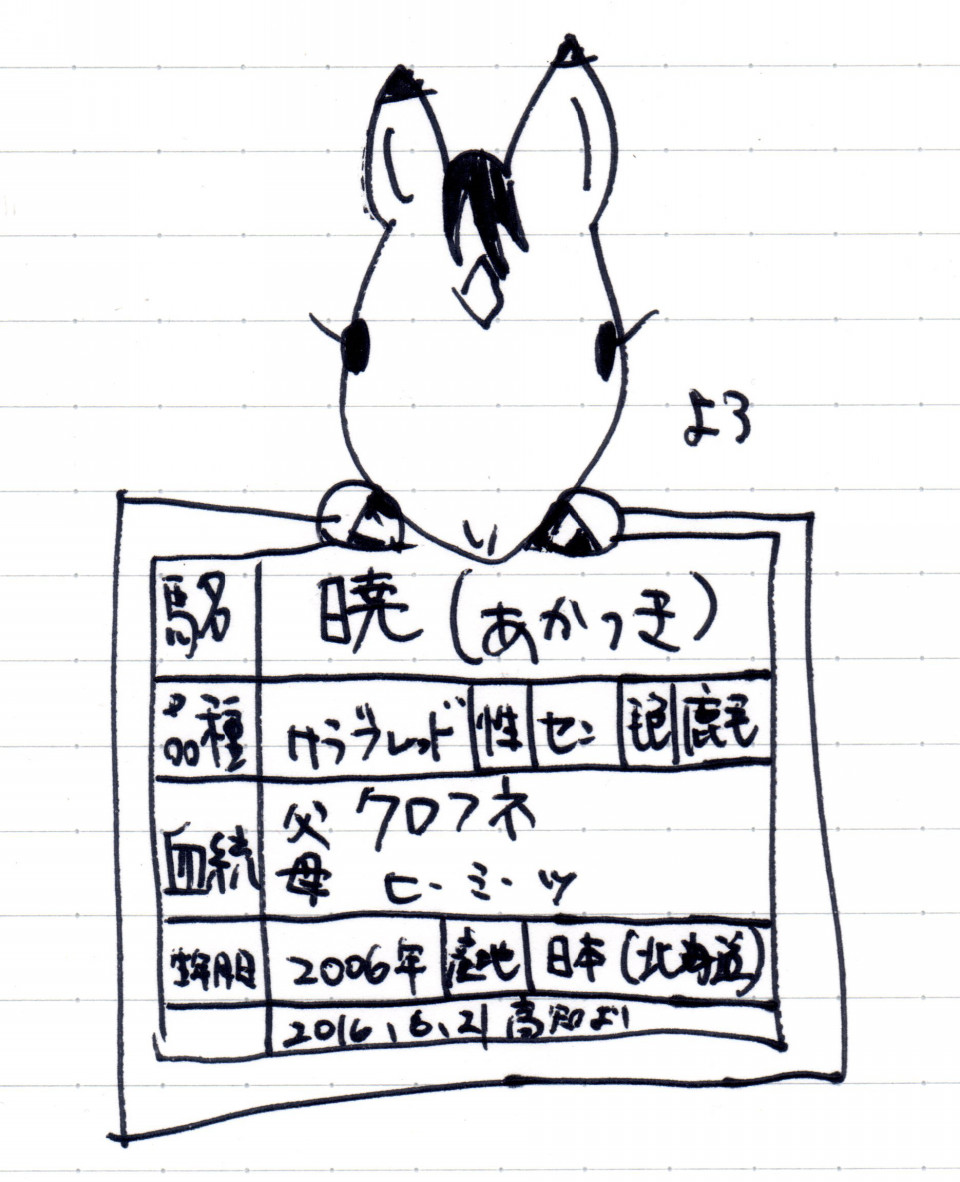 よろ
馬名 暁 (あかつき)
品種 サラブレッド 性 セン 毛色 鹿毛
血統 父 クロフネ
母 ヒ・ミ・ツ
生年月日 2006年 産地 日本 (北海道)
2016.6.21 高知より